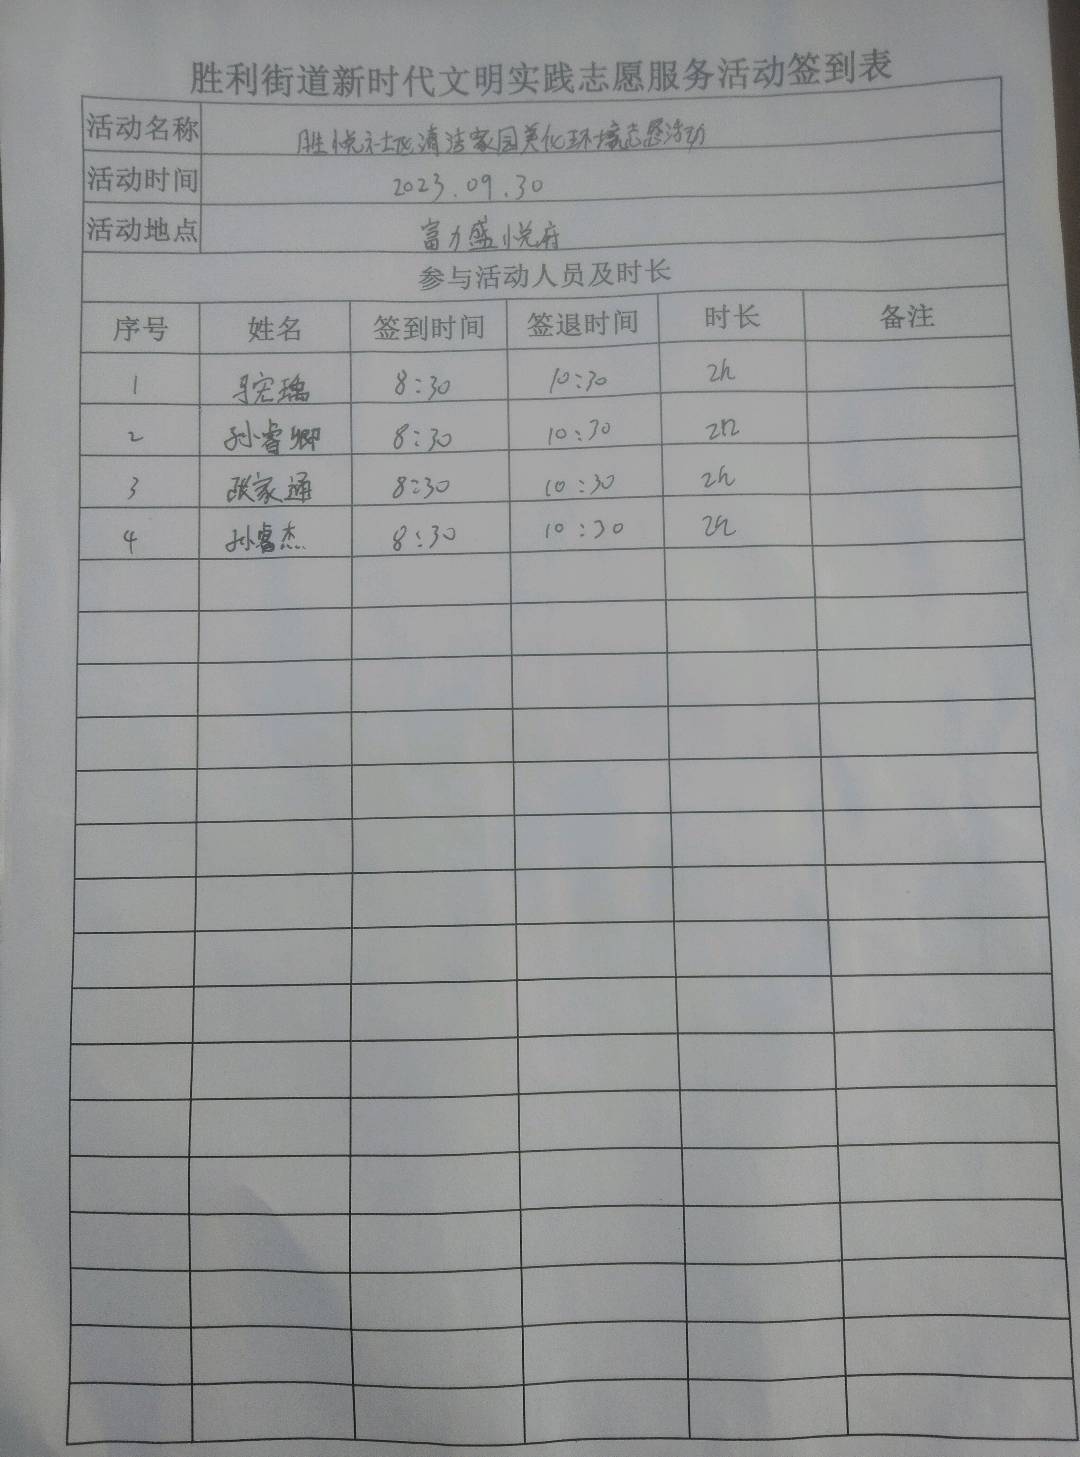 胜利街道新时代文明实践志愿服务活动签到表
活动名称 胜悦社区清洁家园美化环境志愿活动
活动时间 2023.09.30
活动地点 富力盛悦府
参与活动人员及时长
序号 姓名 签到时间 签退时间 时长 备注
1 8:30 10:30 2h
2 孙睿卿 8:30 10:30 2h
3 张家通 8:30 10:30 2h
4 孙睿杰 8:30 10:30 2h